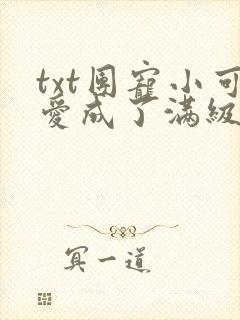 txt團寵小可
愛成了滿級
冥一道